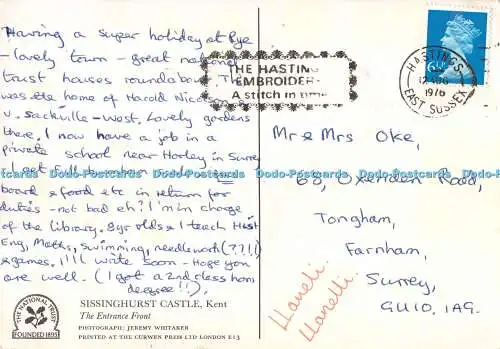 Having a super holiday at Rye
- lovely town - great national
trust houses roundabout. This
was the home of Harold Nicolson
v. Sackville-West. Lovely gardens
there. I now have a job in a
private school near Horley in Surrey
board & food etc in return for
duties - not bad eh? I'm in charge
of the library. 8yr olds & I teach Hist
Eng, Maths, swimming, needlework (??!!)
& games. I'll write soon - Hope you
are well. (I got a 2nd class hons
degree!!),
THE NATIONAL TRUST
FOUNDED 1895
SISSINGHURST CASTLE, Kent
The Entrance Front
PHOTOGRAPH: JEREMY WHITAKER
PRINTED AT THE CURWEN PRESS LTD LONDON E13
THE HASTING
EMBROIDER
A stitch in time
HASTINGS
1976
EAST SUSSEX
Mr & Mrs Oke,
68, Oxenden Road,
Tongham,
Farnham,
Surrey,
GU10, 1AG.
Llanelli
Llanelli
Dado-Postcards Dado-Postcards Dado-Postcards Dado-Postcards
www.dado-postcards.de